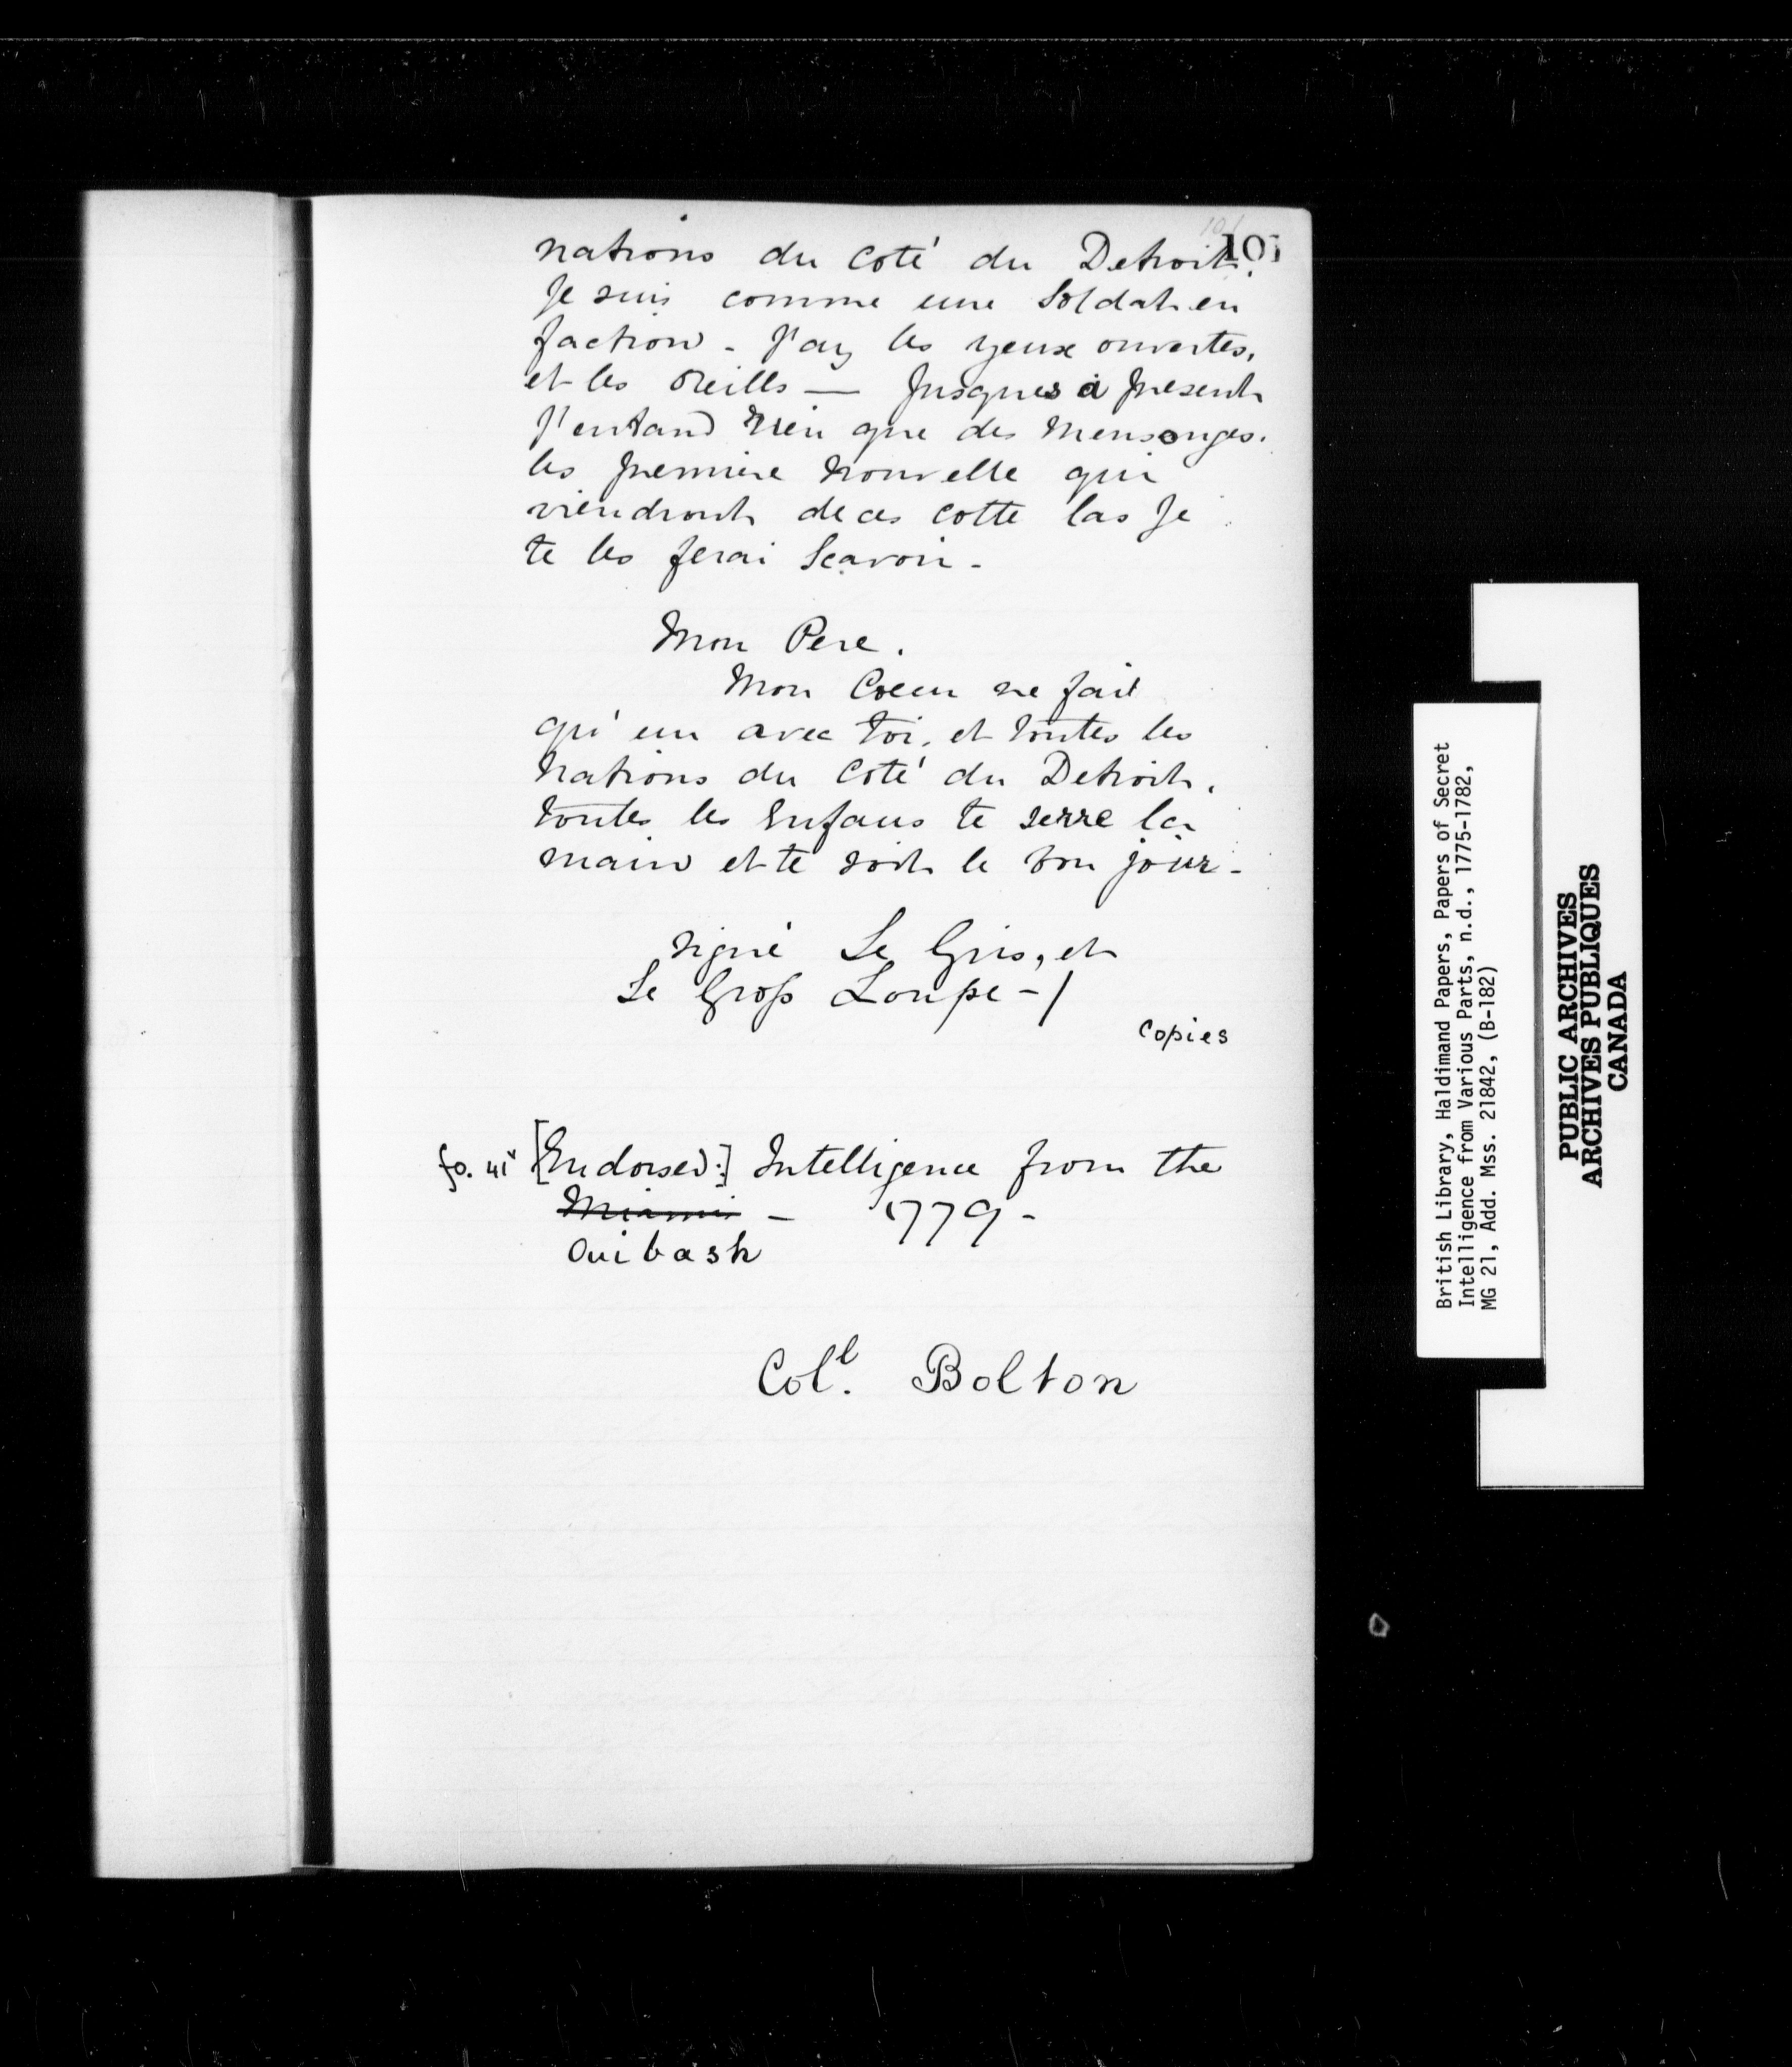 101
nations du coté du Detroit.
Je suis comme une Soldat en
faction - J'ay les yeux ouvertes,
et les oreills — Jusques à present
J'entand rien que des Mensonges.
les premiere nouvelle qui
viendront de ces cotte las Je
te les ferai Scavoir -
Mon Pere.
Mon Coeur ne fait
qu'un avec toi, et toutes les
Nations du Coté du Detroit,
toutes les Enfans te serre la
main et te soit le bon jour -
signé Le Gris, et
Le Gross Loupe -/
copies
fo. 41v [Endorsed:] Intelligence from the
Miamis - 1779 -
Ouibash
Coll. Bolton
British Library, Haldimand Papers, Papers of Secret
Intelligence from Various Parts, n.d., 1775-1782,
MG 21, Add. Mss. 21842, (B-182)
PUBLIC ARCHIVES
ARCHIVES PUBLIQUES
CANADA